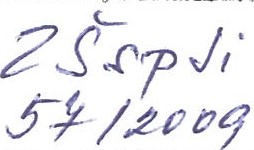 ZŠspJi
57/2009